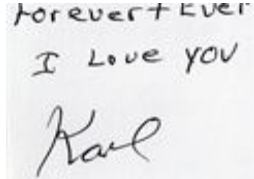 Forever + Ever
I Love you
Karl